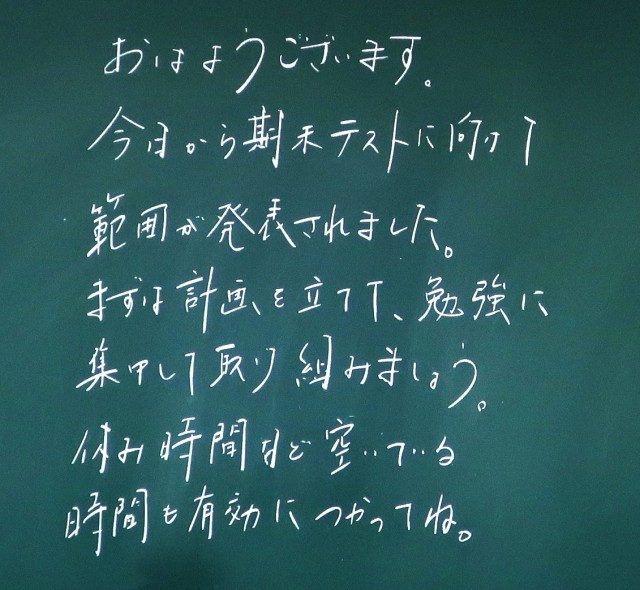 おはようございます。
今日から期末テストに向けて
範囲が発表されました。
まずは計画を立てて、勉強に
集中して取り組みましょう。
休み時間など空いている
時間も有効につかってね。